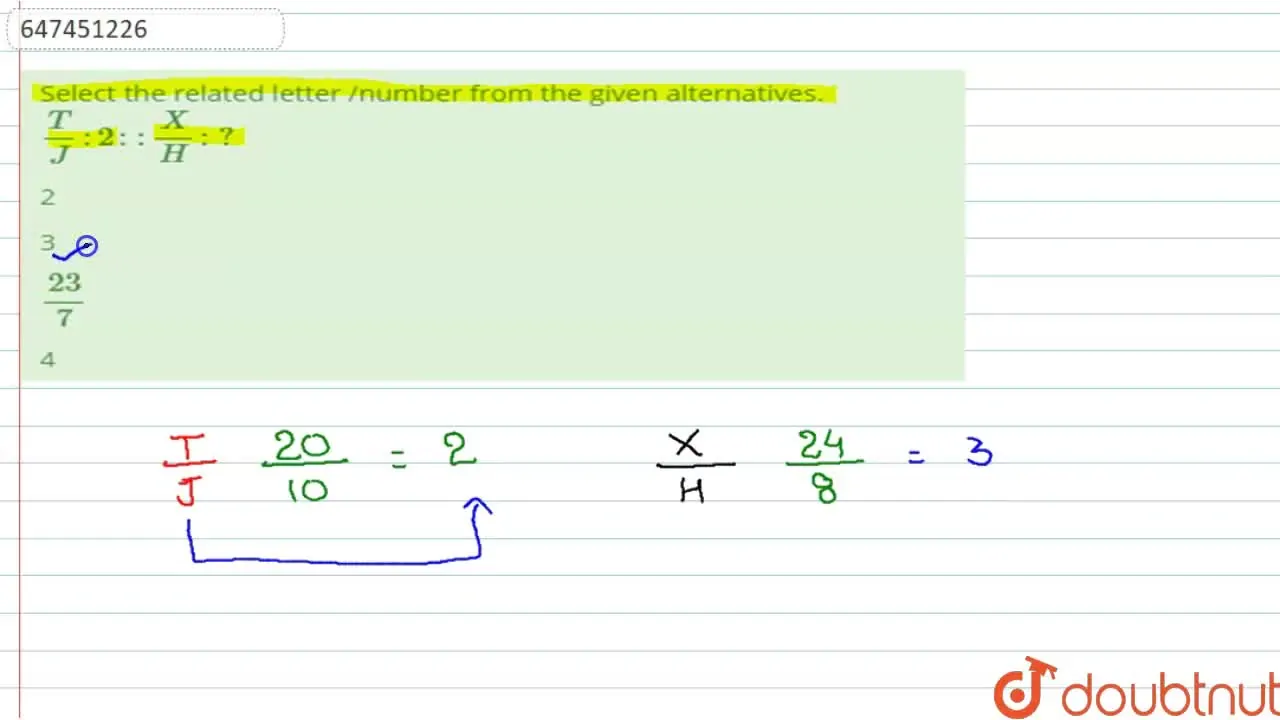 647451226
Select the related letter /number from the given alternatives.
T/J : 2 : : X/H : ?
2
3
23/7
4
T/J 20/10 = 2 X/H 24/8 = 3
doubtnut